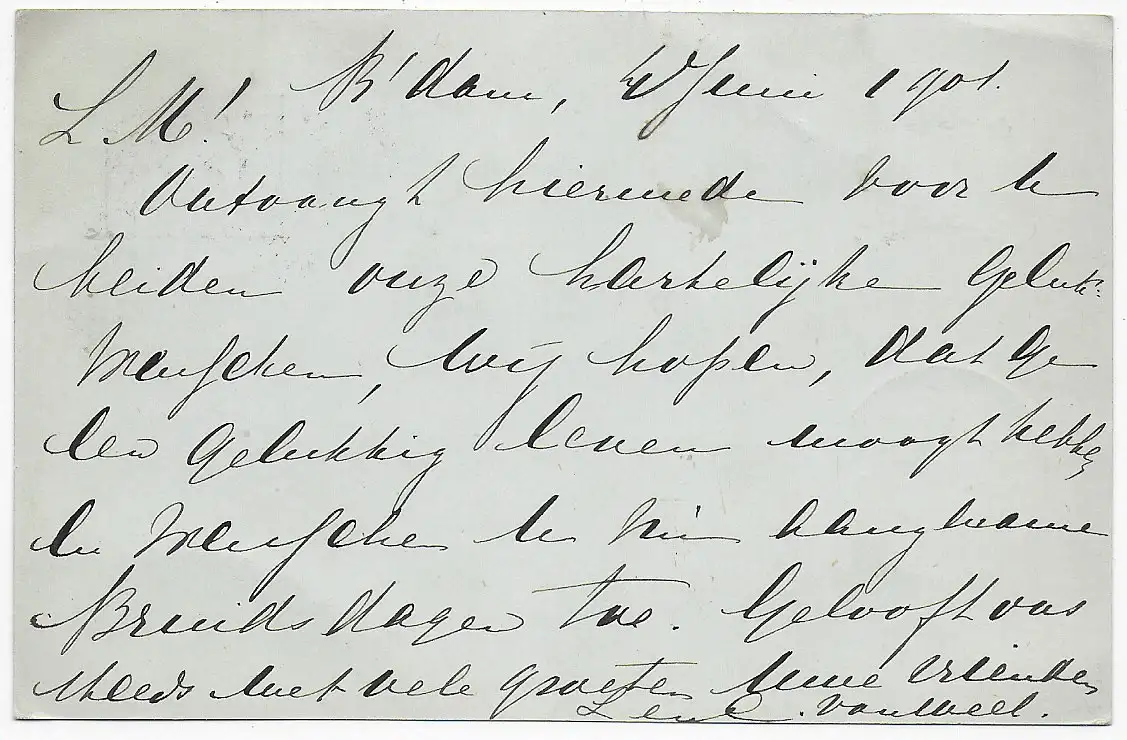 R'dam, 4 Juni 1901.
L M!
Ontvangt hiermede voor U
beiden onze hartelijke Geluk-
wenschen, wij hopen, dat Ge
een Gelukkig leven moogt hebben
en wenschen U bei aangename
Bruidsdagen toe. Gelooft ons
steeds met vele groeten Uwe vrienden
van Weel.